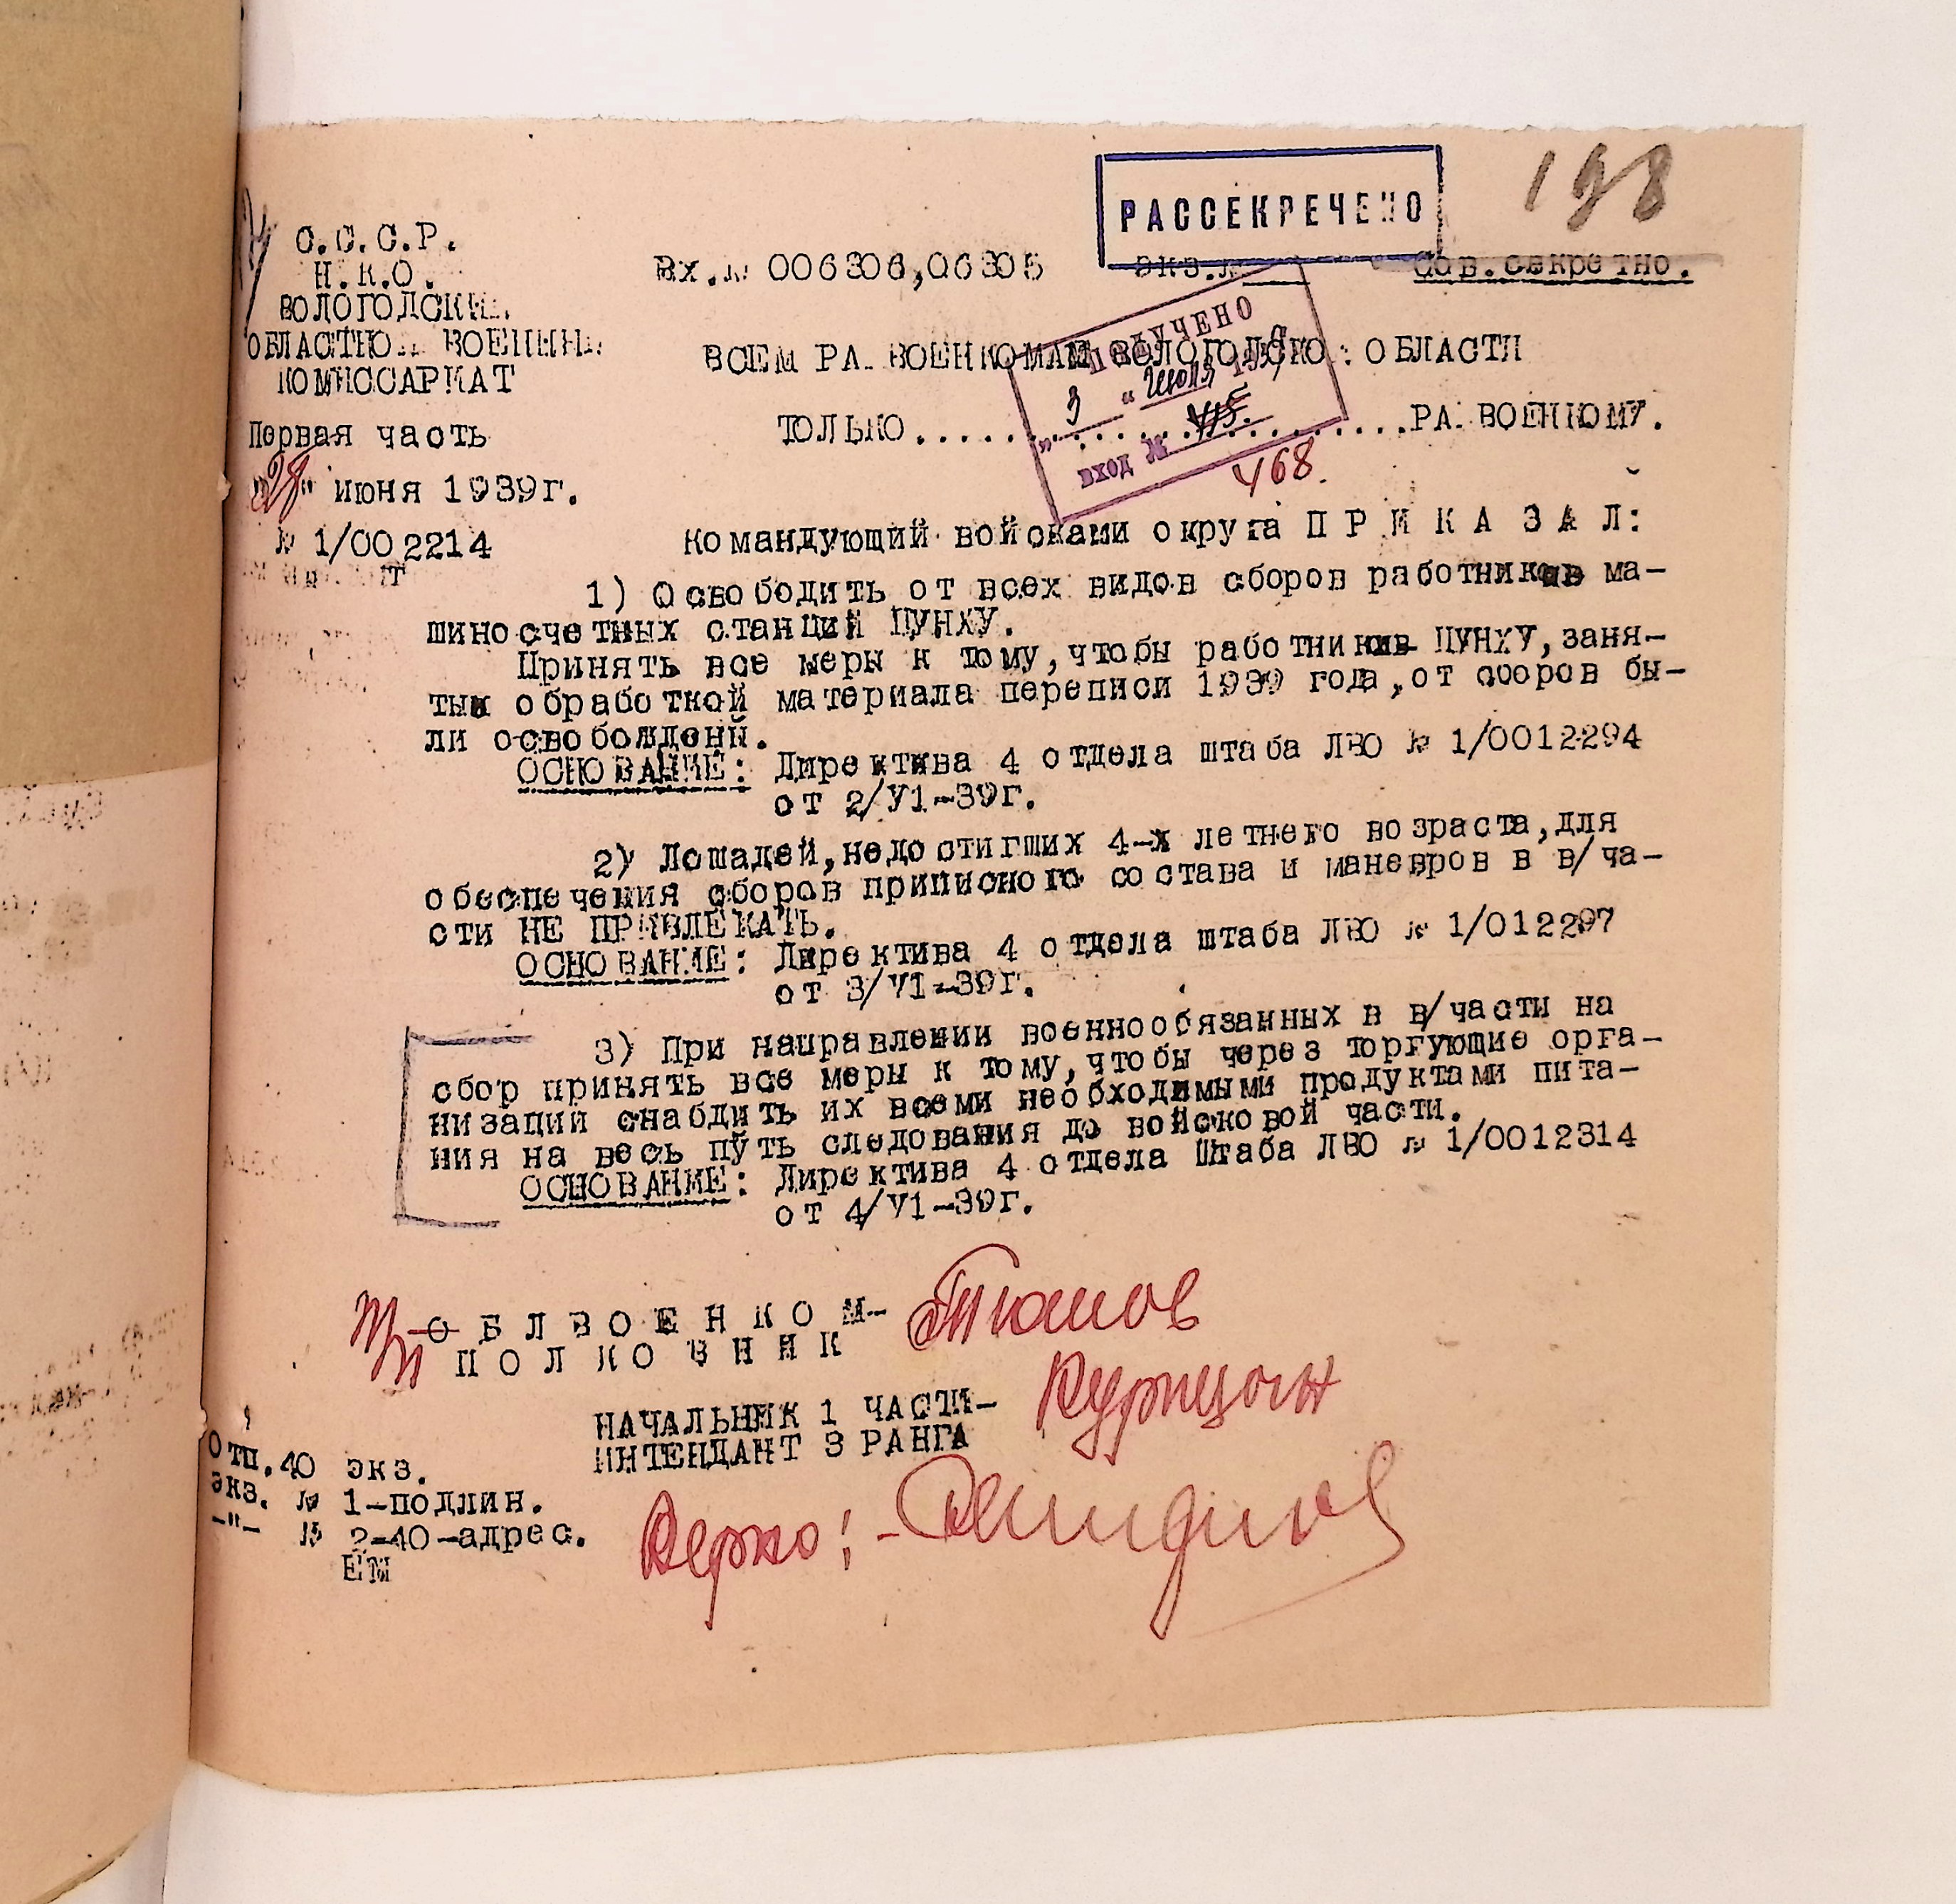 РАССЕКРЕЧЕНО
198
С.С.С.Р.
Н.К.О.
ВОЛОГОДСКИЙ
ОБЛАСТНОЙ ВОЕННЫЙ
КОМИССАРИАТ
Первая часть
"28" июня 1939г.
№ 1/002214
Вх.№ 006306,06305
экз.№
Сов.секретно.
ПОЛУЧЕНО
"3" июля 1939
ВХОД №
468.
ВСЕМ РАЙВОЕНКОМАМ ВОЛОГОДСКОЙ ОБЛАСТИ
ТОЛЬКО..............................РАЙВОЕНКОМУ.
Командующий войсками округа П Р И К А З А Л:
1) Освободить от всех видов сборов работников ма-
шиносчетных станций ЦУНХУ.
Принять все меры к тому,чтобы работники ЦУНХУ,заня-
тые обработкой материала переписи 1939 года,от сборов бы-
ли освобождены.
ОСНОВАНИЕ: Директива 4 отдела штаба ЛВО № 1/0012294
от 2/У1-39г.
2) Лошадей,недостигших 4-х летнего возраста,для
обеспечения сборов приписного состава и маневров в в/ча-
сти НЕ ПРИВЛЕКАТЬ.
ОСНОВАНИЕ: Директива 4 отдела штаба ЛВО № 1/012297
от 3/У1-39г.
3) При направлении военнообязанных в в/части на
сбор принять все меры к тому,чтобы через торгующие орга-
низации снабдить их всеми необходимыми продуктами пита-
ния на весь путь следования до войсковой части.
ОСНОВАНИЕ: Директива 4 отдела Штаба ЛВО № 1/0012314
от 4/У1-39г.
О Б Л В О Е Н К О М-
П О Л К О В Н И К
НАЧАЛЬНИК 1 ЧАСТИ-
ИНТЕНДАНТ 3 РАНГА
Верно:
Отп.40 экз.
экз. № 1-подлин.
-"- № 2-40-адрес.
ЕМ